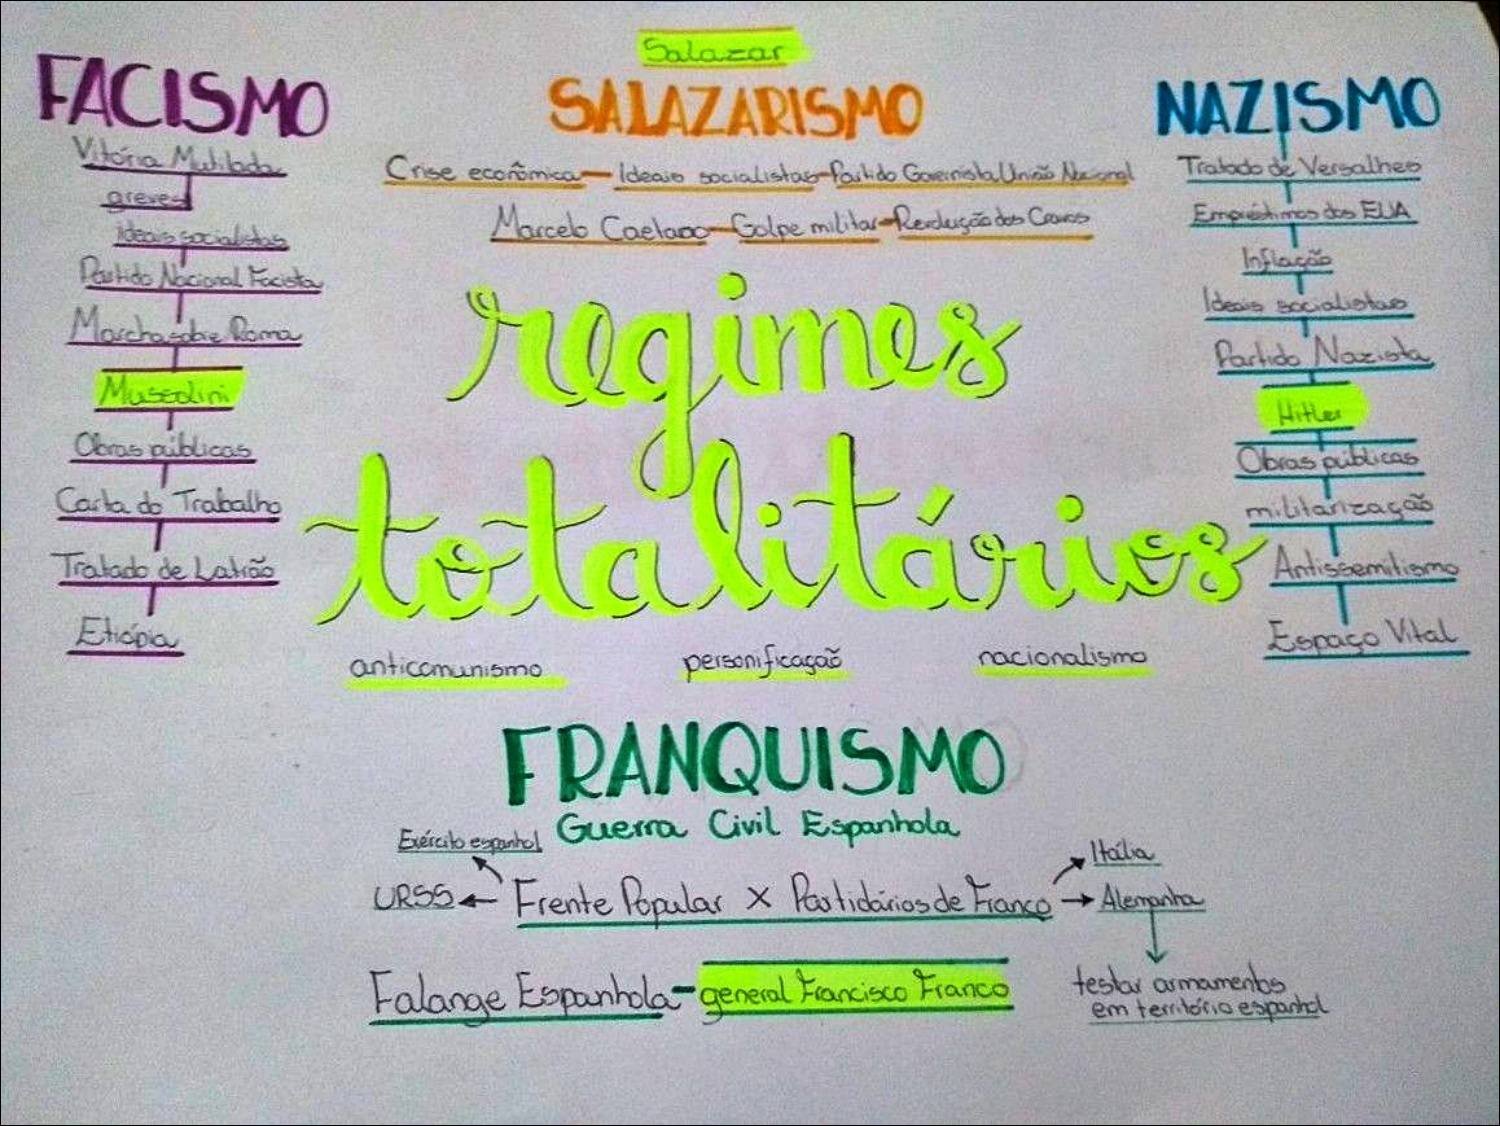 Salazar
FACISMO
SALAZARISMO
NAZISMO
Vitória Mutilada
greves
ideais socialistas
Partido Nacional Facista
Marcha sobre Roma
Mussolini
Obras públicas
Carta do Trabalho
Tratado de Latrão
Etiópia
Crise econômica - Ideais socialistas - Partido Governista União Nacional
Marcelo Caetano - Golpe militar - Revolução dos Cravos
Tratado de Versalhes
Empréstimos dos EUA
Inflação
Ideais socialistas
Partido Nazista
Hitler
Obras públicas
militarização
Antissemitismo
Espaço Vital
regimes
totalitários
anticomunismo
personificação
nacionalismo
FRANQUISMO
Guerra Civil Espanhola
Exército espanhol
Itália
URSS ← Frente Popular X Partidários de Franco → Alemanha
Falange Espanhola - general Francisco Franco
testar armamentos
em território espanhol